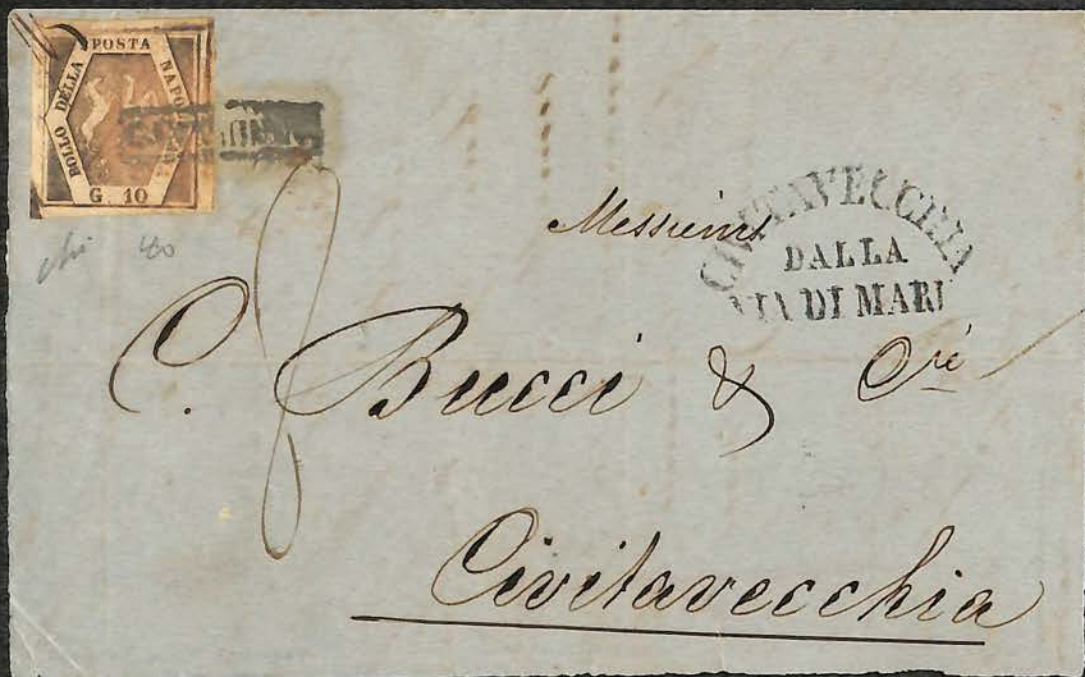 BOLLO DELLA POSTA NAPOLETANA
G. 10
Messieurs
CIVITAVECCHIA
DALLA
VIA DI MARE
C. Bucci & Cie
Civitavecchia